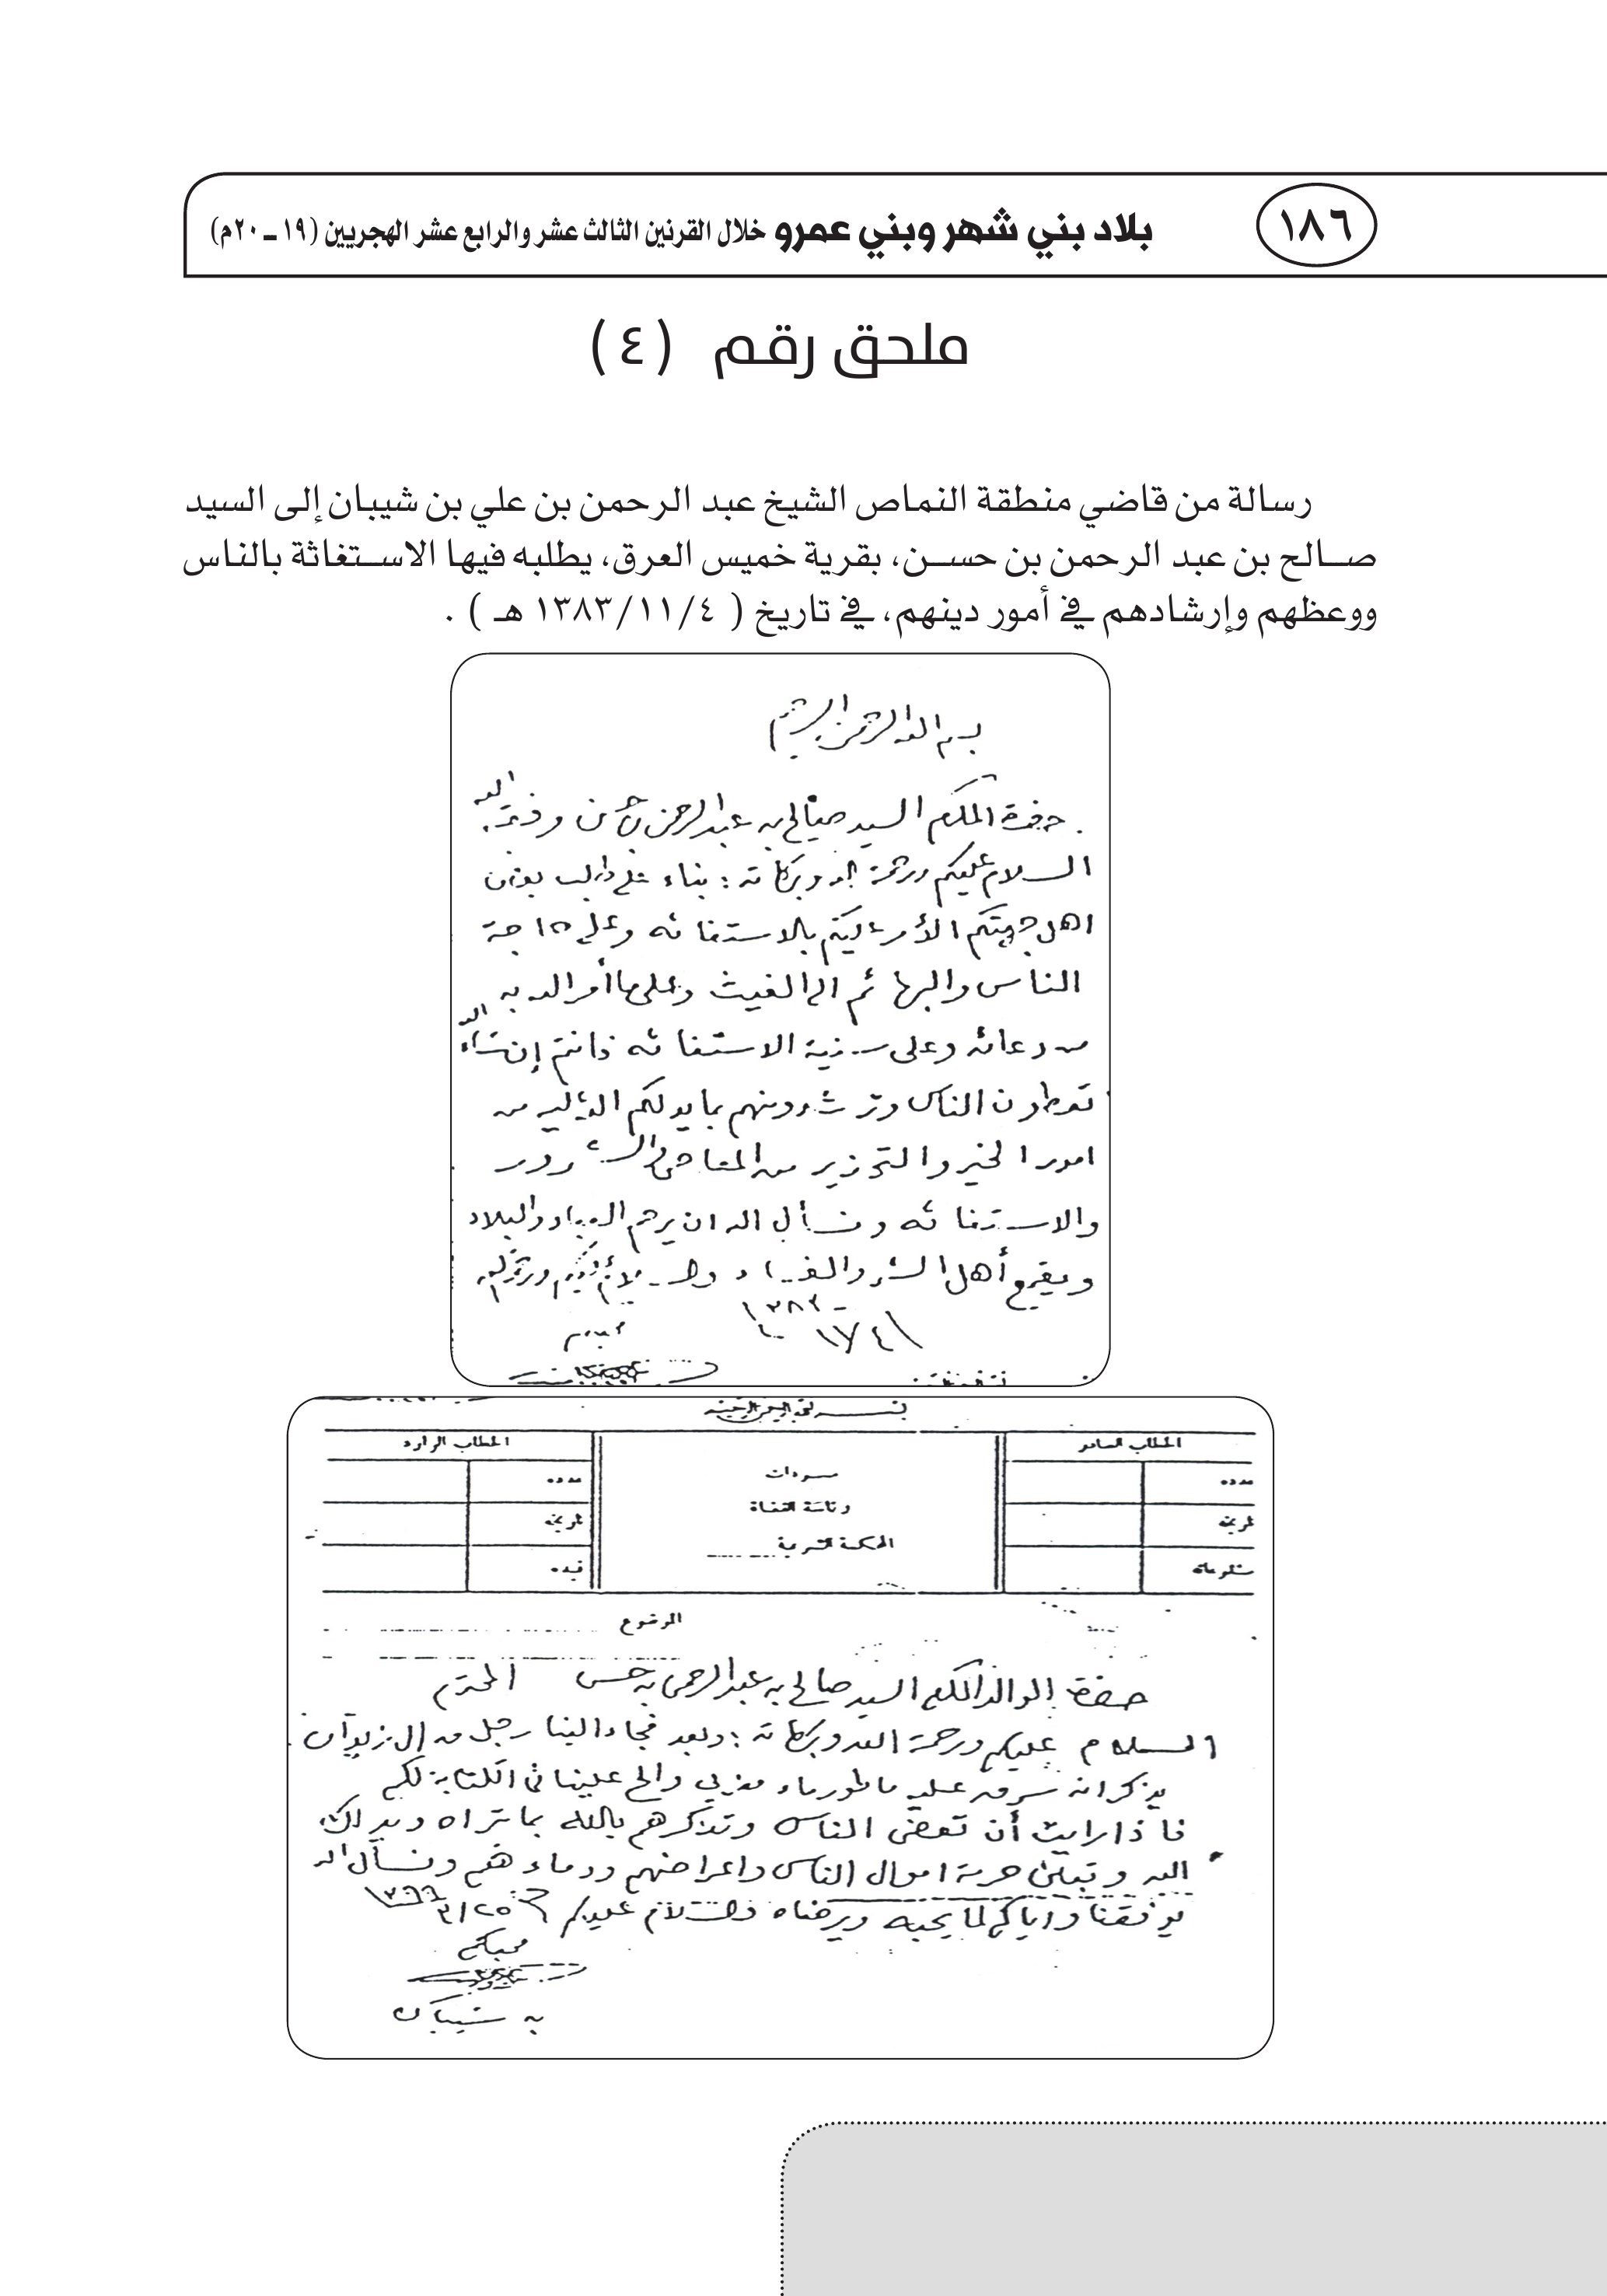 ١٨٦
بلاد بني شهر وبني عمرو خلال القرنين الثالث عشر والرابع عشر الهجريين (١٩ ــ ٢٠م)
ملحق رقم (٤)
رسالة من قاضي منطقة النماص الشيخ عبد الرحمن بن علي بن شيبان إلى السيد
صــالح بن عبد الرحمن بن حســن، بقرية خميس العرق، يطلبه فيها الاســتغاثة بالناس
ووعظهم وإرشادهم في أمور دينهم، في تاريخ ( ١٣٨٣/١١/٤ هـ ) .
بسم الله الرحمن الرحيم
حضرة المكرم السيد صالح بن عبد الرحمن بن وفقه الله
السلام عليكم ورحمة الله وبركاته : بناء على طلب بعض
اهل جهتكم الأمر عليكم بالاستغاثه وعلى حاجة
الناس والبهائم الى الغيث وعلى ما أمر الله به
من دعائه وعلى سنية الاستغاثه فانتم إن شاء الله
تعظون الناس وترشدونهم بما يدلكم الله اليه من
امور الخير والتحذير من المعاصي والشرور
والاستغاثه ونسأل الله ان يرحم العباد والبلاد
ويقمع أهل الشر والفساد والسلام عليكم ورحمة الله
١٣٨٣
محبكم
بسم الله الرحمن الرحيم
الخطاب الصادر
عدده
تاريخه
ملحوظاته
مسودات
رئاسة القضاة
المحكمة الشرعية
الخطاب الوارد
عدده
تاريخه
قيده
الموضوع
حضرة الوالد المكرم السيد صالح بن عبد الرحمن بن حسن المحترم
السلام عليكم ورحمة الله وبركاته : وبعد فجاء الينا رجل من آل
يذكر انه سرق عليه ماطور ماء والح علينا في الكتابة لكم
فاذا رايت أن تعض الناس وتذكرهم بالله بما تراه
الله وتبين حرمة اموال الناس واعراضهم ودماءهم ونسأل الله
يوفقنا واياكم لما يحبه ويرضاه والسلام عليكم ٣/٢٥
محبكم
بن شيبان